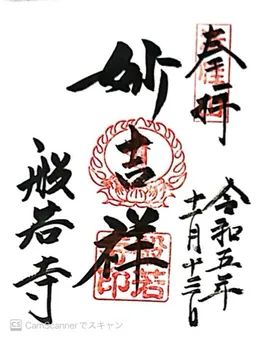 奉拝
令和五年
十一月十三日
妙吉祥
般若寺
般若寺印
CS CamScannerでスキャン